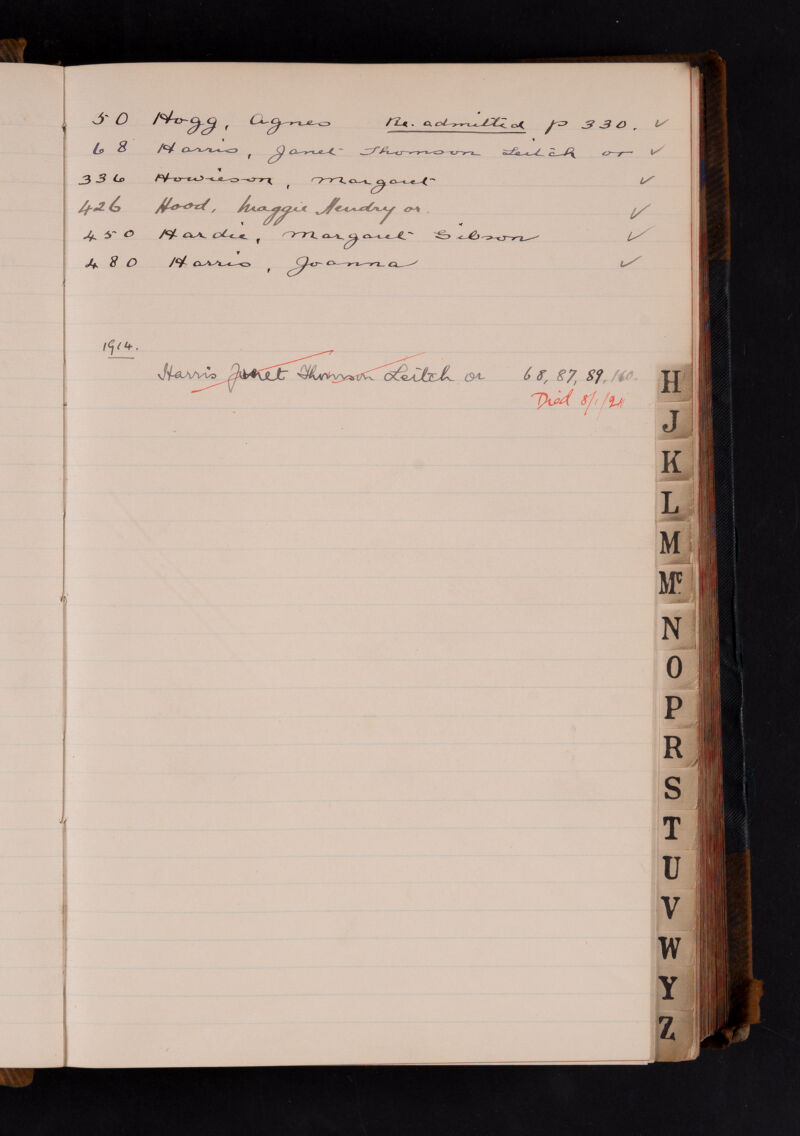 50 Hogg, Agnes Re. admitted p 330. ✓
68 Harris, Janet Thomson Leitch or ✓
336 Howieson, Margaret ✓
426 Hood, Maggie Hendry or. ✓
450 Hardie, Margaret Gibson ✓
480 Harris, Joanna ✓
1914.
Harris Janet Thomson Leitch or 68, 87, 89, 160.
Died 8/1/24
H
J
K
L
M
Mc
N
O
P
R
S
T
U
V
W
Y
Z